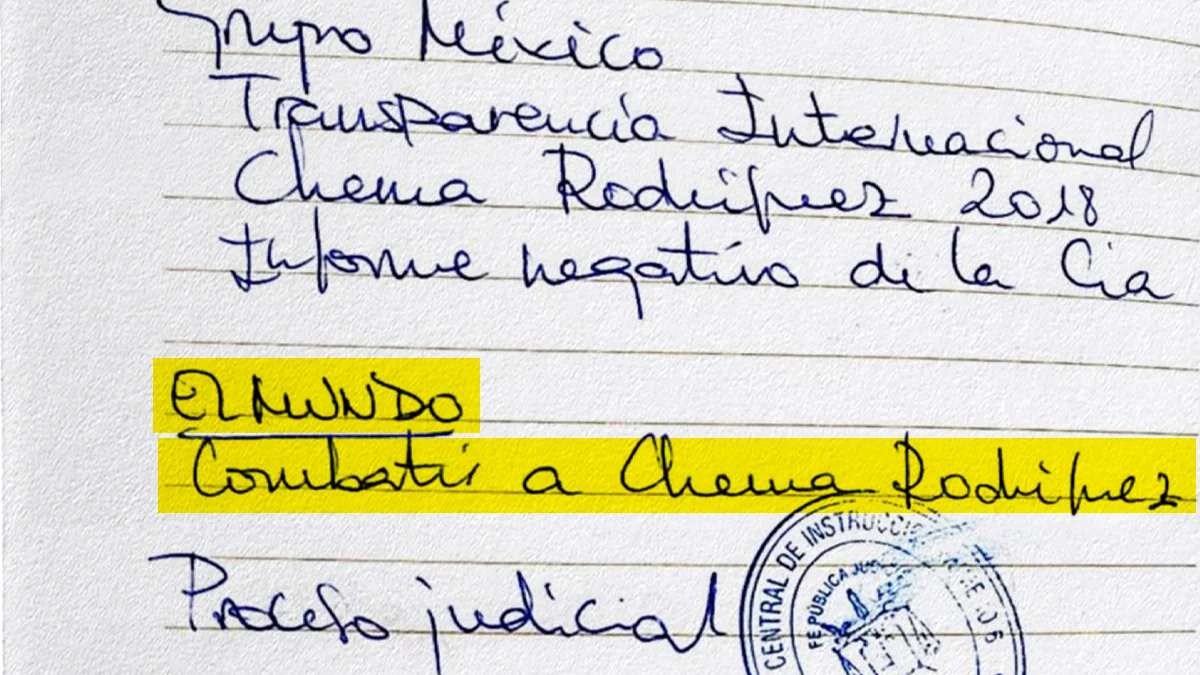 Grupo México
Transparencia Internacional
Chema Rodríguez 2018
Informe negativo de la Cia
EL MUNDO
Combatir a Chema Rodríguez
Proceso judicial
CENTRAL DE INSTRUCCIÓN
FE PÚBLICA